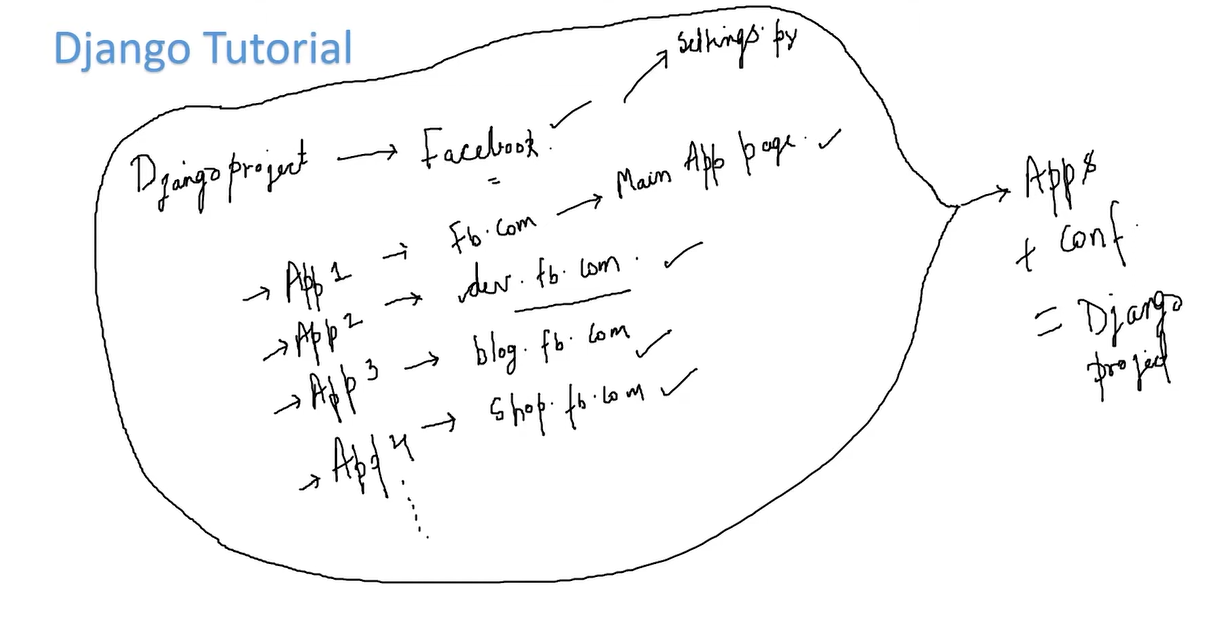 Django Tutorial
Settings.py
Django project → Facebook.
App 1 → fb.com → Main App page.
App 2 → dev.fb.com.
App 3 → blog.fb.com
App 4 → Shop.fb.com
Apps
+ conf.
= Django
project